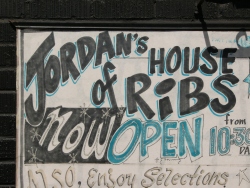 JORDAN's HOUSE
of RiBS
NOW OPEN from
10-30
ALSO, Enjoy Selections